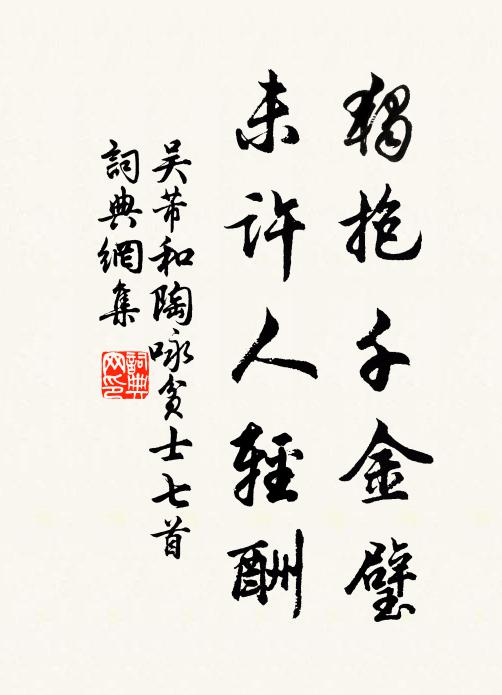 獨抱千金璧
未許人輕酬
吳芾和陶咏貧士七首
詞典網集
詞典
网印